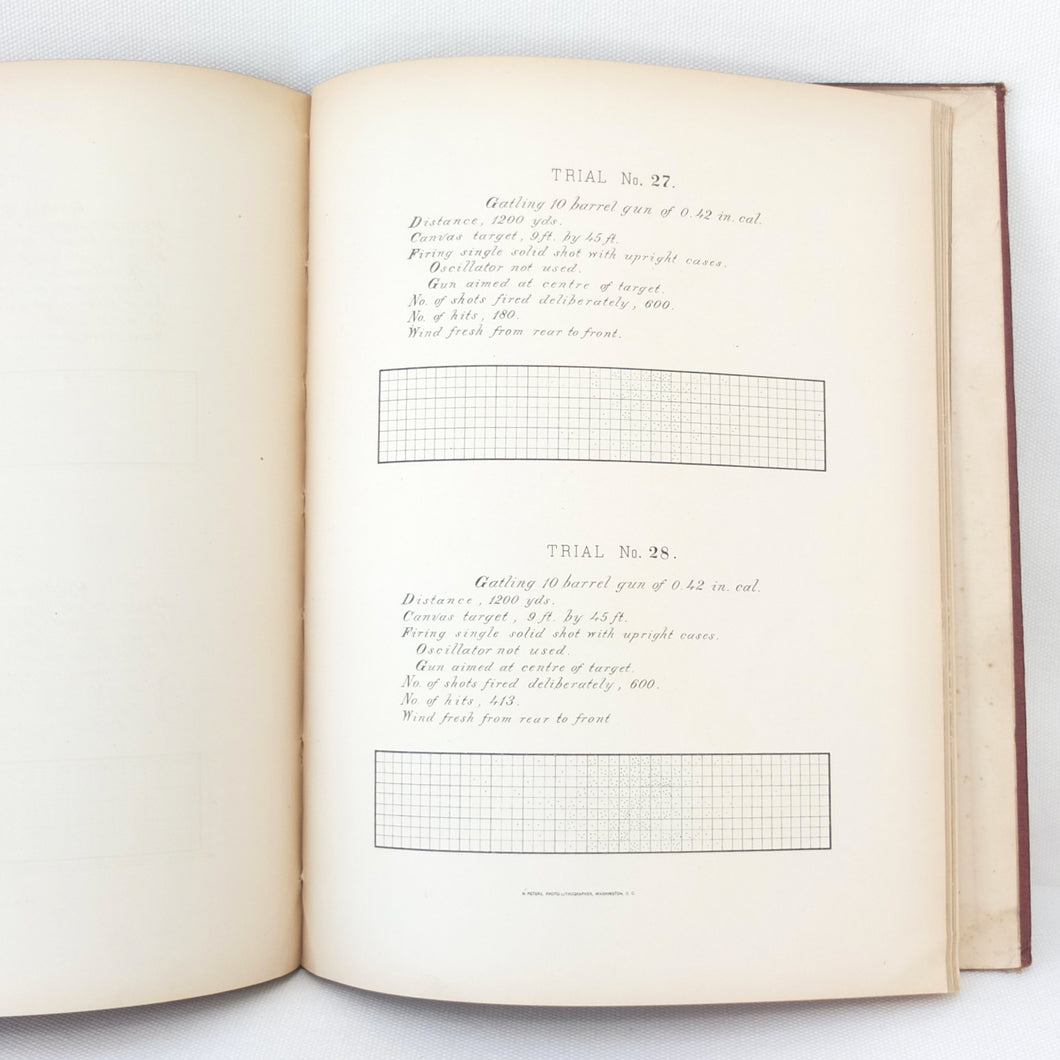 TRIAL No. 27.
Gatling 10 barrel gun of 0.42 in. cal.
Distance, 1200 yds.
Canvas target, 9 ft. by 45 ft.
Firing single solid shot with upright cases.
Oscillator not used.
Gun aimed at centre of target.
No. of shots fired deliberately, 600.
No. of hits, 180.
Wind fresh from rear to front.
TRIAL No. 28.
Gatling 10 barrel gun of 0.42 in. cal.
Distance, 1200 yds.
Canvas target, 9 ft. by 45 ft.
Firing single solid shot with upright cases.
Oscillator not used.
Gun aimed at centre of target.
No. of shots fired deliberately, 600.
No. of hits, 413.
Wind fresh from rear to front
N. PETERS, PHOTO-LITHOGRAPHER, WASHINGTON, D. C.